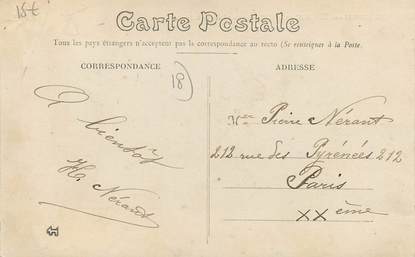 15€
Carte Postale
Tous les pays étrangers n'acceptent pas la correspondance au recto (Se renseigner à la Poste.
CORRESPONDANCE
18
A bientôt
H. Nérant
ADRESSE
Pierre Nérant
212 rue des Pyrénées 212
Paris
XXème